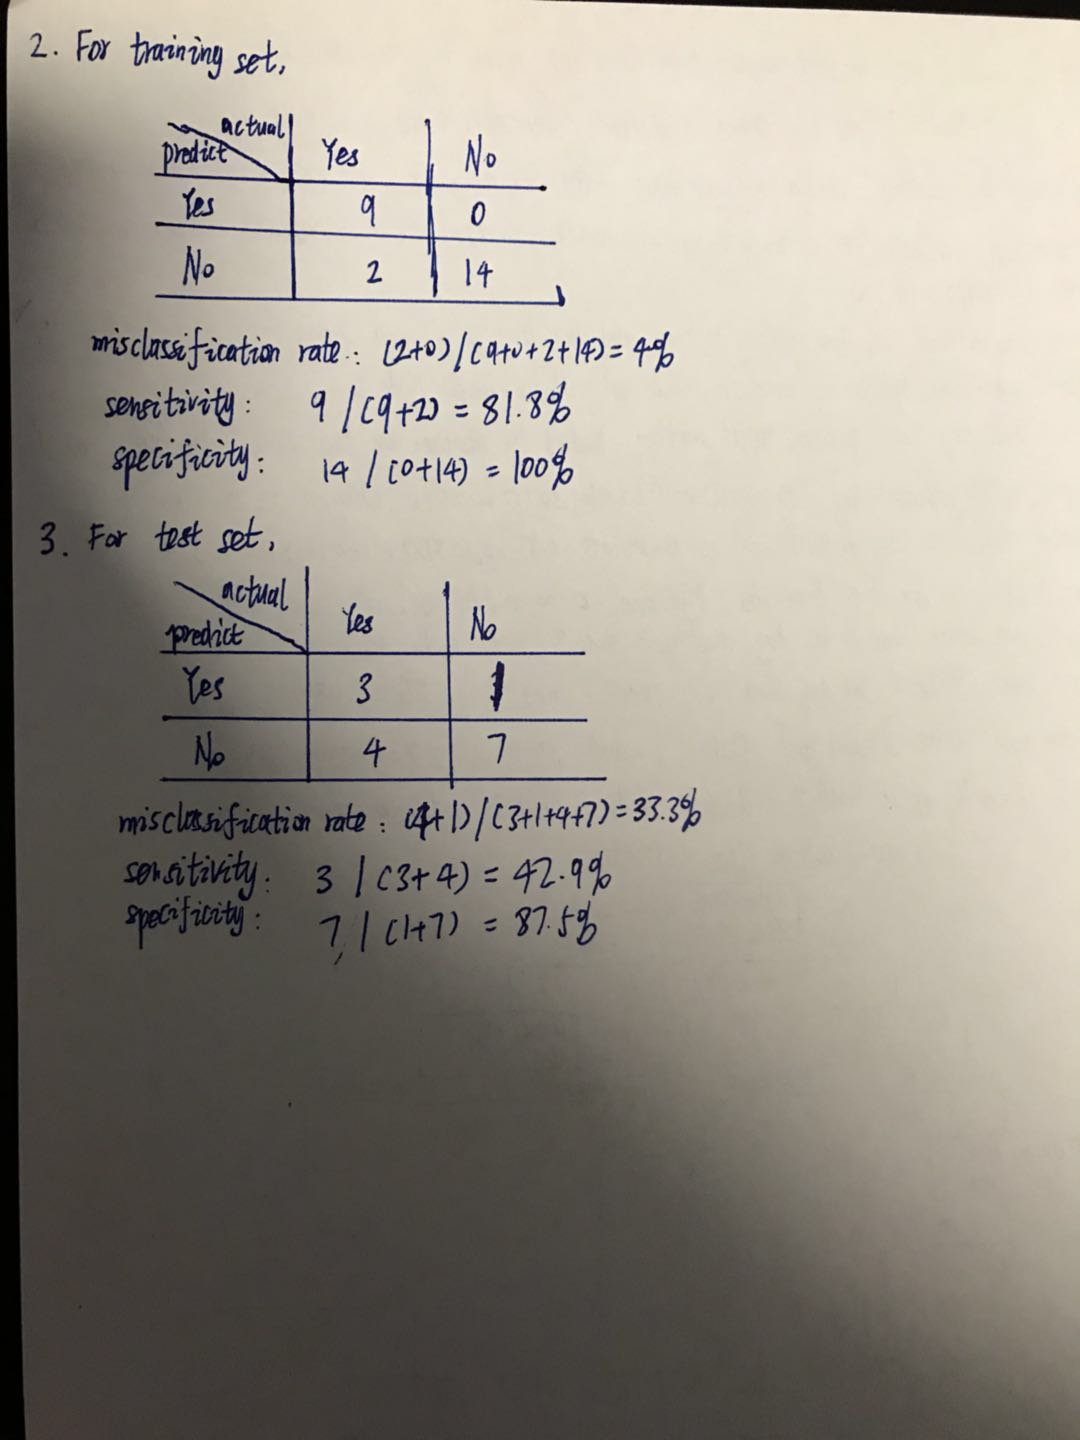 2. For training set,
actual
predict
Yes No
Yes 9 0
No 2 14
misclassification rate: (2+0)/(9+0+2+14)=4%
sensitivity: 9/(9+2)=81.8%
specificity: 14/(0+14)=100%
3. For test set,
actual
predict
Yes No
Yes 3 1
No 4 7
misclassification rate: (4+1)/(3+1+4+7)=33.3%
sensitivity: 3/(3+4)=42.9%
specificity: 7/(1+7)=87.5%